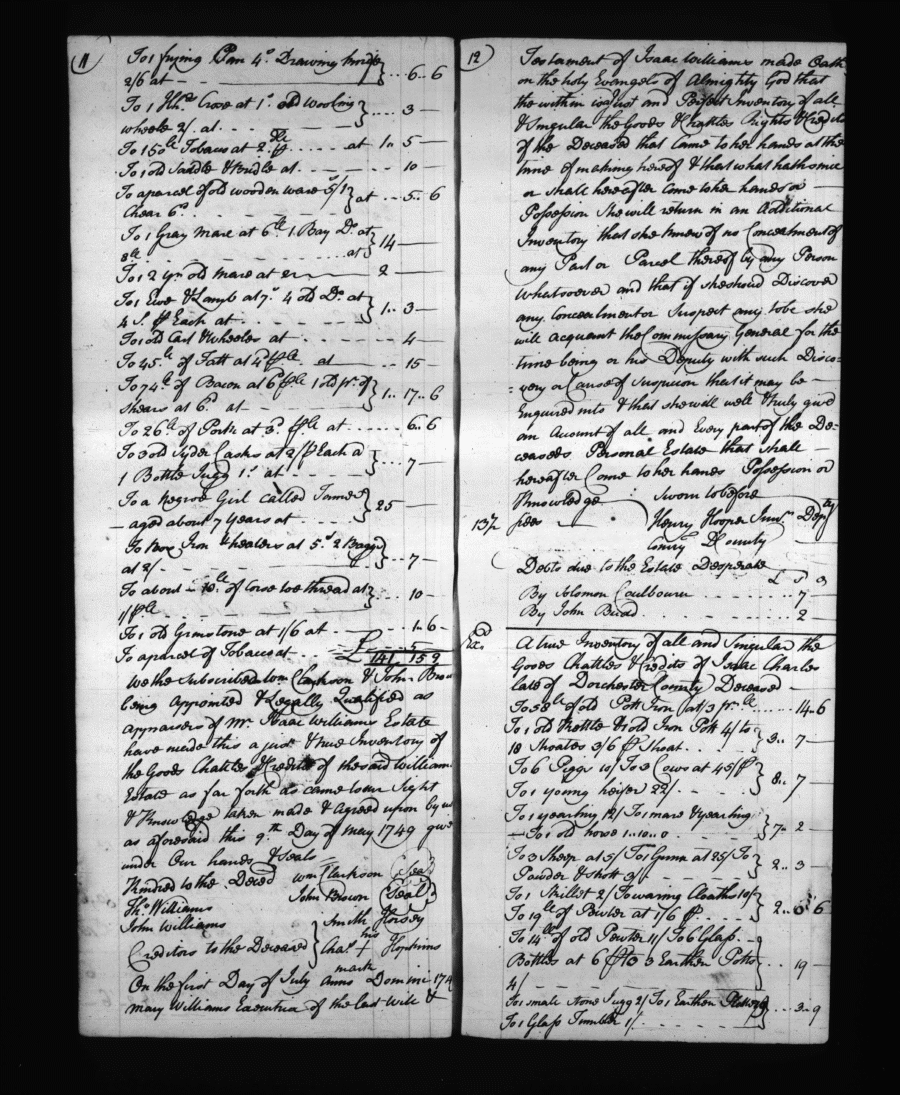 11
To 1 frying Pan 4s. Drawing knife
2/6 at - - } ... 6.. 6
To 1 Hhd Cask at 1s. old Wooling
wheele 2/. at. . - - } .... 3 —
To 150 le Tobacco at 2d ple . . . . . at 1.. 5 —
To 1 old Saddle & Bridle at. . - - - - . . 10 —
To a parcel of old wooden ware 5/ 1
Chear 6d. . } at . . 5.. 6
To 1 Gray Mare at 6 le 1 Bay Do. at
8 le . . at } 14 —
To 1 2 yrs old mare at 2 —
To 1 Ewe & Lamb at 7s. 4 old Do. at
4 S. P Each at - - } 1.. 3 —
To 1 old Cart & wheeles at - - - - 4 —
To 45 le of Fatt at 4d P le at 15 —
To 74 le of Bacon at 6d P le 1 old pr. of
shears at 6d. at - - } 1.. 17.. 6
To 26 le of Pork at 3d. P le at . . . . . . 6.. 6
To 3 old Syder Casks at 2/ P Each a
1 Bottle Jugg 1s. at - } ... 7 —
To a Negroe Girl Called
aged about 7 Years at . . . } 25 —
To Box Iron & heaters at 5s. 2 Baggs
at 2/ - - } ... 7 —
To about 10 le of Corse thread at
1/ P le. } ... 10 —
To 1 old Grinstone at 1/6 at 1.. 6 -
To a parcel of Tobacco at . . 5
£ 141 15 9
We the Subscribers Wm Clarkson & John Brown
being Appointed & Legally Qualified as
appraisers of Mr. Isaac Williams Estate
have made this a just & true Inventory of
the Goods Chatles & Credits of the said William
Estate as far forth as came to our Sight
& Knowledge taken made & Agreed upon by us
as aforesaid this 9th Day of May 1749 given
under Our hands & Seals
Kindred to the Deced Wm Clarkson (Seal)
Thos. Williams John Brown (Seal)
John Williams
Creditors to the Deceased } Smith Horsey
Chas. + Hopkins
his
mark
On the first Day of July Anno Domini 174
Mary Williams Executrix of the Last Will &
12
Testament of Isaac Williams made Oath
on the holy Evangels of Almighty God that
the within is a Just and Perfect Inventory of all
& Singular the Goods & Chattles Rights & Credits
of the Deceased that Came to her hands at the
time of making hereof & that what hath since
or shall hereafter Come to her hands or
Possession She will return in an Additional
Inventory that she knows of no Concealment of
any Part or Parcel thereof by any Person
whatsoever and that if she should Discover
any Concealment or Suspect any to be she
will acquaint the Commissary General for the
time being or his Deputy with such Disco=
=very or Cause of Suspicion that it may be
Enquired into & that she will well & truly give
an Account of all and Every part of the De-
ceaseds Personal Estate that shall
hereafter Come to her hands Possession or
Knowledge : Sworn to before
137 fees Henry Hooper Junr. Depty
Comry D County
Debts due to the Estate Desperate
£ S D
By Solomon Coulbourn . . . . . . . 7 —
By John Budd . . . . . . . 2 —
Exd
A true Inventory of all and Singular the
Goods Chattles & Credits of Isaac Charles
late of Dorchester County Deceased
To 58 le of old Pott Iron at /3 pr. le . . . . . 14.. 6
To 1 old Kettle & old Iron Pott 4/ to
18 Shoates 3/6 P Shoat. . . } 3.. 7 —
To 6 Piggs 10/ To 3 Cows at 45/ P
To 1 young heifer 22/ } 8.. 7 —
To 1 yearling 12/ To 1 mare & yearling
To 1 old horse 1..10..0 } 7.. 2 —
To 3 Sheep at 5/ To 1 Gunn at 25/ To
Powder & Shott 3/ } 2.. 3 —
To 1 Skillet 2/ To waring Cloaths 10/
To 19 le of Pewter at 1/6 P . } 2.. 0.. 6
To 14 le of old Pewter 11/ To 6 Glass
Bottles at 6 P To 3 Earthen Potts
4/ } . . 19 —
To 1 small stone Jugg 2/ To 1 Earthen
To 1 Glass Tumbler 1/ } ... 3.. 9